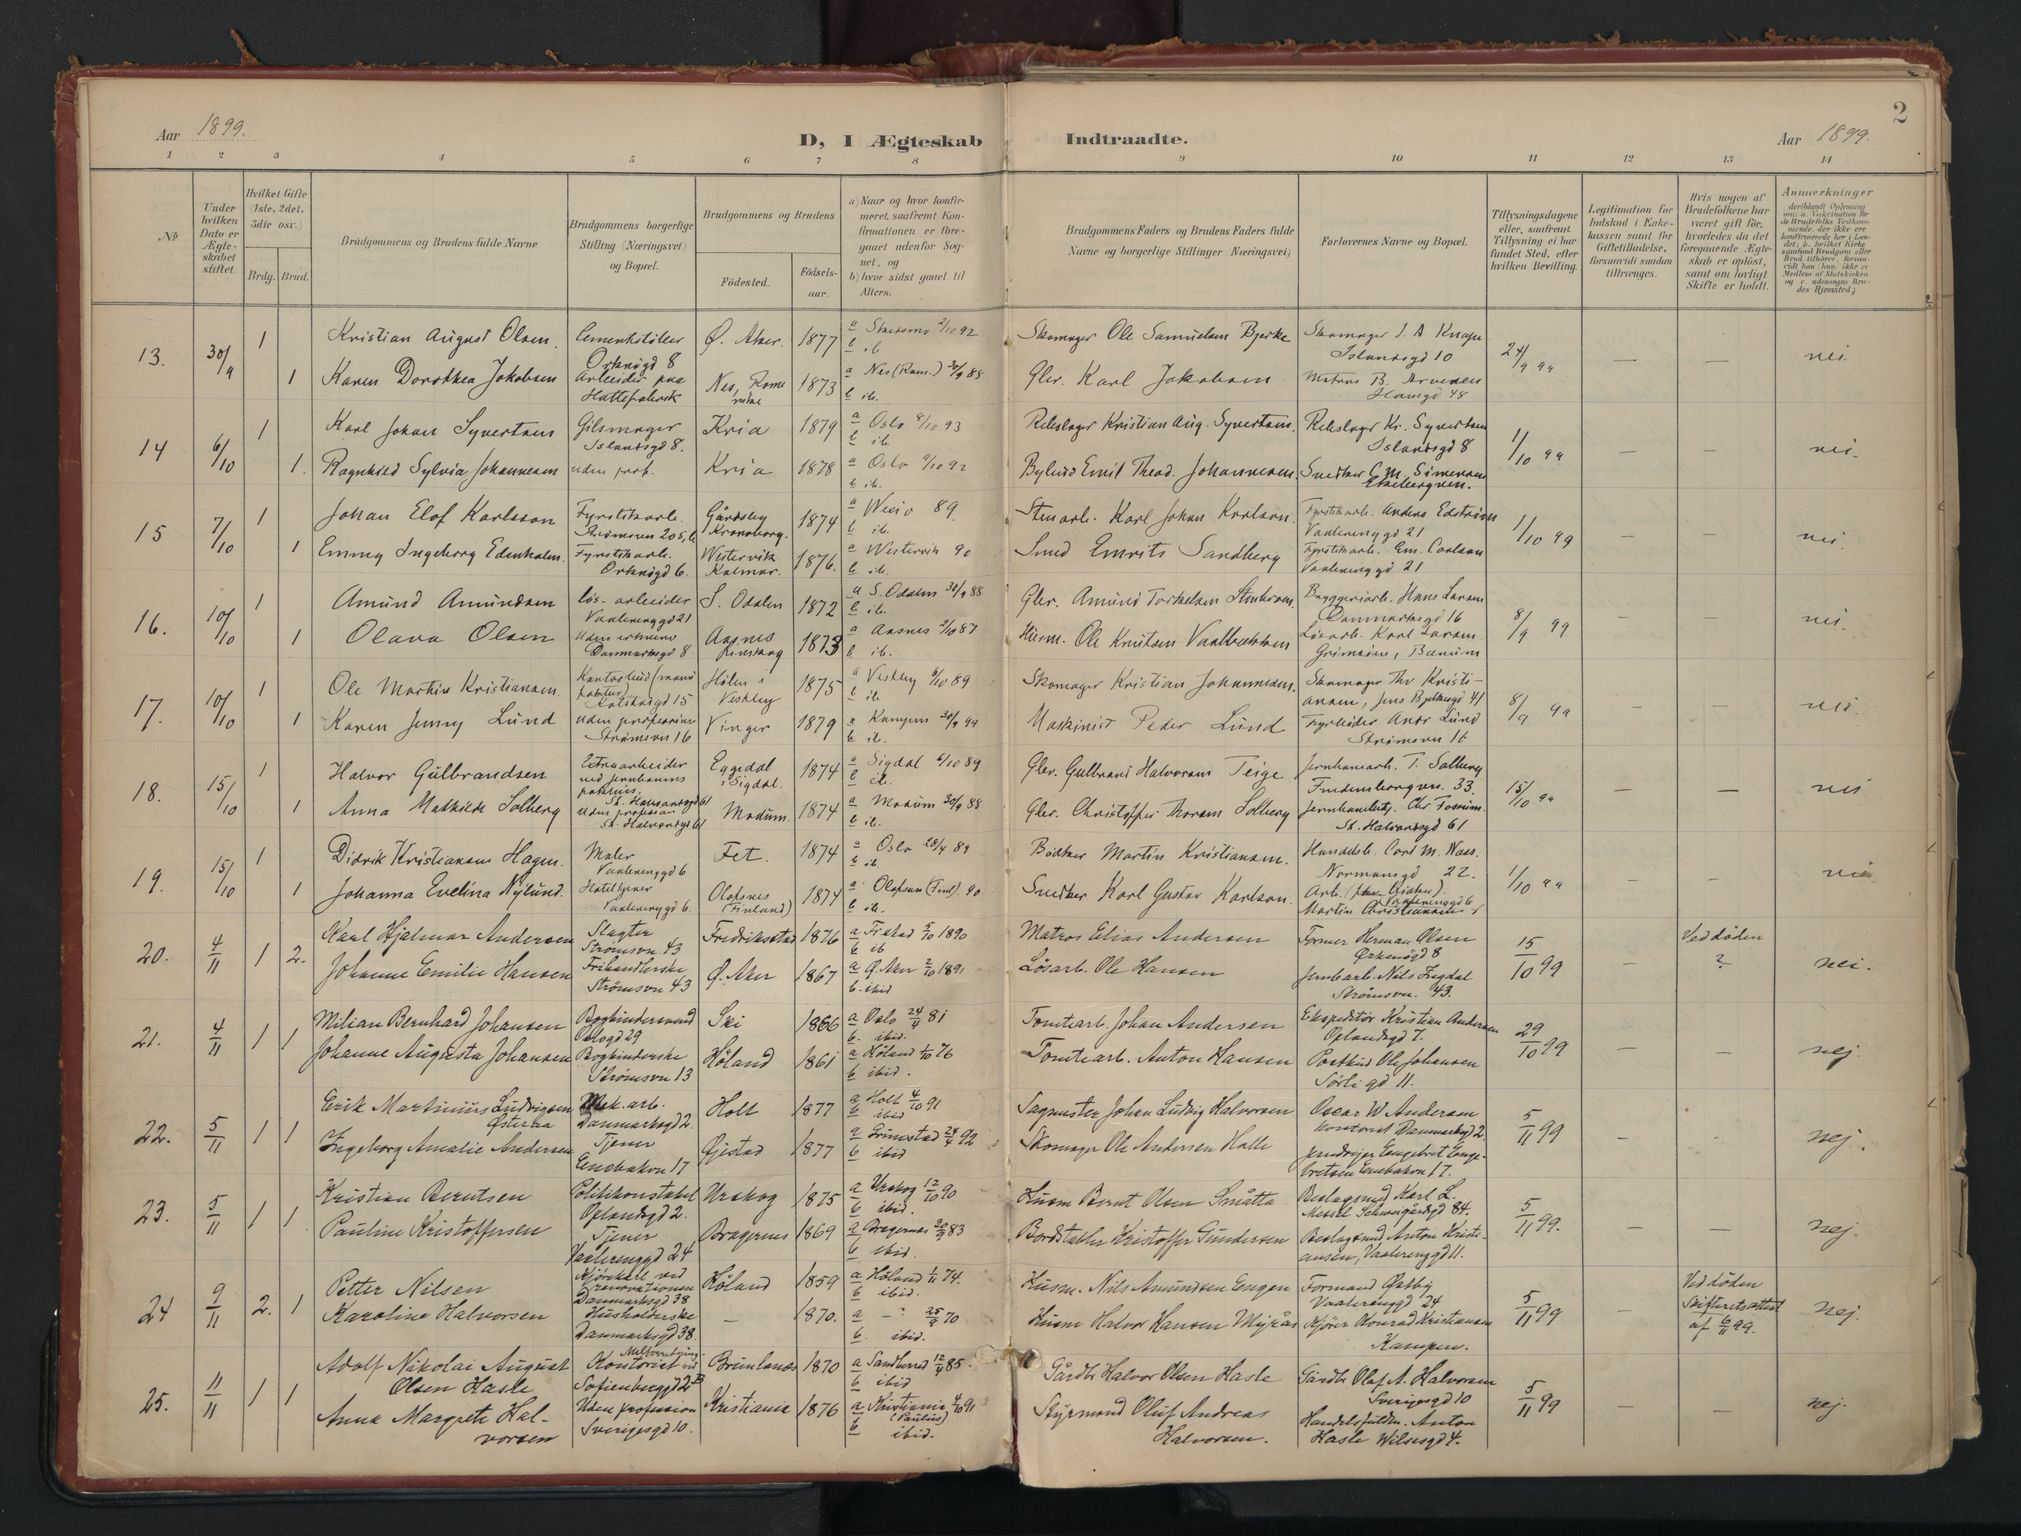 2
Aar 1899.
D, I Ægteskab Indtraadte.
Aar 1899.
1 2 3 4 5 6 7 8 9 10 11 12 13 14
No
Under hvilken Dato er Ægteskabet stiftet.
Hvilket Gifte (1ste, 2det, 3die osv.)
Brdg. Brud.
Brudgommens og Brudens fulde Navne
Brudgommens borgerlige Stilling (Næringsvei) og Bopæl.
Brudgommens og Brudens
Fødested.
Fødselsaar.
a) Naar og hvor konfirmeret, saafremt Konfirmationen er foregaaet udenfor Sognet, og
b) hvor sidst gaaet til Alters.
Brudgommens Faders og Brudens Faders fulde Navne og borgerlige Stillinger (Næringsvei)
Forlovernes Navne og Bopæl.
Tillysningsdagene eller, saafremt Tillysning ei har fundet Sted, efter hvilken Bevilling.
Legitimation for Indskud i Enkekassen samt for Giftetilladelse, forsaavidt saadan tiltrænges.
Hvis nogen af Brudefolkene har været gift før, hvorledes da det foregaaende Ægteskab er opløst, samt om lovligt Skifte er holdt.
Anmerkninger
13. 30/9 1 Kristian August Olsen. Cementstøber Orknøgd 8 Ø. Aker. 1877 a 2/10 92 b ib Skomager Ole Samuelsen Bjerke Skomager I. A. Knape Islandsgd 10 24/9 99 — — nei.
1 Karen Dorothea Jakobsen Arbeider paa Hattefabrik Nes, Romerike 1873 a Nes (Rom.) 30/9 88 b ib. Gbr. Karl Jakobsen Matros B. 48
14 6/10 1 Karl Johan Syvertsen Islandsgd 8. Kria 1879 a Oslo 8/10 93 b ib. Rebslager Kristian Aug. Syvertsen. Rebslager Kr. Syvertsen Islandsgd 8 1/10 99 — — nei.
1. Ragnhild Sylvia Johannesen uden prof. Kria 1878 a Oslo 9/10 92 b ib. Bybud Emil Theod. Johannesen. Snedker C. M. Simensen Ekebergven.
15 7/10 1 Johan Elof Karlsson Fyrstikarb. Strømsvn 20 Gårdsby Kronoberg. 1874 a Wexio 89. b ib. Stenarb. Karl Johan Karlson. Fyrstikarb. Anders Edström Vaalerenggd 21 1/10 99 — — nei.
1 Emmy Ingeborg Edenholm. Fyrstikarb. Orknøgd 6. Westervik Kalmar. 1876. a Westervik 90 b ib. Smed Sandberg Fyrstikarb. Em. Carlson Vaalerenggd 21
16. 10/10 1 Amund Amundsen løs-arbeider Vaalerenggd 21 S. Odalen 1872 a S. Odalen 30/9 88 b ib. Gbr. Amund Torkelsen Bryggeriarb. Hans Larsen Danmarksgd 16 8/9 99 — — nei.
1 Olava Olsen Danmarksgd 8 Aasnes Finskog 1873 a Aasnes 2/10 87 b ib. Husm. Ole Knutsen Vaalbækken Løsarb. Karl Larsen Grimsøen, Bærum
17. 10/10 1 Ole Martin Kristiansen. Hølen i Vestby 1875 a Vestby 6/10 89 b ib Skomager Kristian Johannesen. Skomager Thv Kristiansen, Jens Bjelkesgd 41 8/9 99 — — nei.
1 Karen Jenny Lund uden profession Strømsvn 16 Vinger 1879 a Kampen 30/9 94 b ib. Maskinist Peder Lund Fyrbøder Andr. Lund Strømsvn 16
18. 15/10 1 Halvor Gulbrandsen Extraarbeider ved jernbanens St. Halvardsgd 61 Eggedal i Sigdal. 1874 a Sigdal 6/10 89 b ib. Gbr. Gulbrand Halvorsen Teige Jernbanearb. T. Solberg Fredensborgvn. 33. 15/10 99 — — nei
1 Anna Mathilde Solberg uden profession St. Halvardsgd 61 Modum. 1874 a Modum 30/9 88 b ib. Gbr. Christoffer Thorsen Solberg St. Halvardsgd 61
19. 15/10 1 Didrik Kristiansen Hagen. Maler Vaalerenggd 6 Fet. 1874 a Oslo 28/4 89 b ib. Bødker Martin Kristiansen. Handelsb. Carl M. Næss. Normansgd 22. 1/10 99 — — nei
1 Johanna Evelina Nylund. Hoteltjener Vaalerenggd 6. Olofsnes (Finland) 1874 a Olofsn (Finl). 90 b ib. Snedker Karl Gustav Karlson. Martin Christiansen Vaalerenggd 6
20. 4/11 1 2. Karl Hjalmar Andersen Slagter Strømsvn 43 Fredriksstad 1876 a Frstad 5/10 1890 b ib Matros Elias Andersen Former Herman Olsen Orkenøgd 8 15/10 99 — Ved døden ? nei.
Johanne Emilie Hansen Frihandlerske Strømsvn 43 Ø. Aker 1867 a Ø. Aker 2/10 1891 b. ibid Løsarb. Ole Hansen Jernbarb. Nils Zigdal Strømsvn. 43.
21. 4/11 1 1 Milian Bernhard Johansen Bogbindersvend Oslogd 29 Ski 1866 a Oslo 24/4 81 b. ibid. Tomtearb. Johan Andersen Ekspeditør Kristian Andersen Oplandsgd 7. 29/10 99 — — nej.
Johanne Augusta Johansen Bogbinderske Strømsvn 13 Høland 1861 a Høland 1/10 76 b ibid. Tomtearb. Anton Hansen Postbud Ole Johansen Sørligd 11.
22. 5/11 1 1 Erik Martinius Ludvigsen Østeraa Mek. arb. Danmarksgd 2. Holt 1877 a Holt 4/10 91 b ibid Sagmester Johan Ludvig Halvorsen Oscar W Andersen kontorist Danmarksgd 2. 5/11 99 — — nej.
Ingeborg Amalie Andersen Tjener Enebakvn 17 Øjestad 1877 a Grimstad 24/4 92 b ibid Skomager Ole Andersen Halle Jerndrejer Engebret Engebretsen Enebakvn 17.
23. 5/11 1 1 Kristian Berntsen Politikonstabel Oplandsgd 2. Urskog 1875 a Urskog 12/10 90 b ibid. Husm Bernt Olsen Småtta Beslagsmed Karl L. Messel Schweigårdsgd 84. 5/11 99. — — nej.
Pauline Kristoffersen Tjener Vaalerenggd 24 Bragernes 1869 a Bragernes 30/9 83 b ibid. Bordstabler Kristoffer Gundersen Beslagsmed, Anton Kristiansen, Vaalerenggd 11.
24 9/11 2. 1 Petter Nilsen Kjørekarl ved Renovationen Danmarksgd 38 Høland 1859 a Høland 1/11 74. b ibid. Husm. Nils Amundsen Engen Formand Østby Vaalerenggd 24 5/11 99 — Ved døden Skifteretsattest af 6/11 99. nej.
Karoline Halvorsen Husholderske Danmarksgd 38. — 1870. a — 25/9 70 b. ibid. Husm Halvor Hansen Myrås Kjører Konrad Kristiansen Kampen.
25. 11/11 1 1 Adolf Nikolai August Olsen Hasle Kontorist Sofienberggd 2B Brunlanes 1870 a Sandherred 12/4 85. b ibid Gårdbr Halvor Olsen Hasle Gårdbr Olaf A. Halvorsen Sverigesgd 10 5/11 99 — — nej.
Anna Margrete Halvorsen Uden profession Sverigesgd 10. Kristiania 1876 a Kristiania 4/10 91 (Paulus) b ibid. Styrmand Oluf Andreas Halvorsen. Handelsfuldm. Anton Hasle Wilsesgd 4.